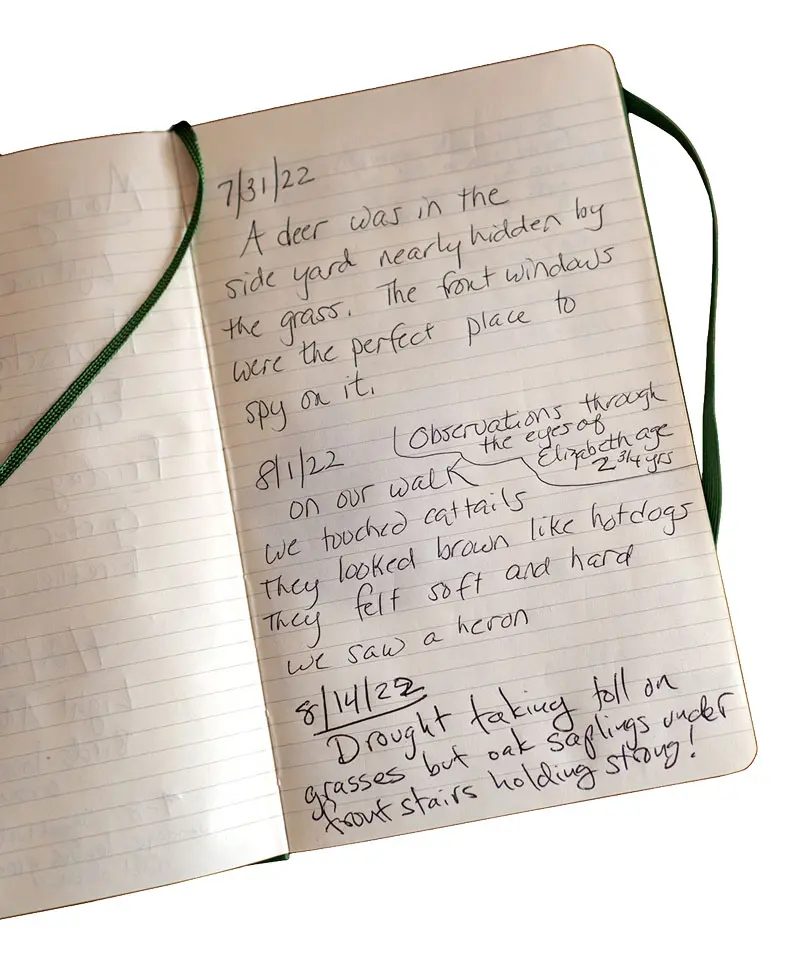 7/31/22
A deer was in the
side yard nearly hidden by
the grass. The front windows
were the perfect place to
spy on it.
8/1/22
Observations through
the eyes of
Elizabeth age
2 3/4 yrs
on our walk
we touched cattails
They looked brown like hotdogs
They felt soft and hard
we saw a heron
8/14/22
Drought taking toll on
grasses but oak saplings under
front stairs holding strong!